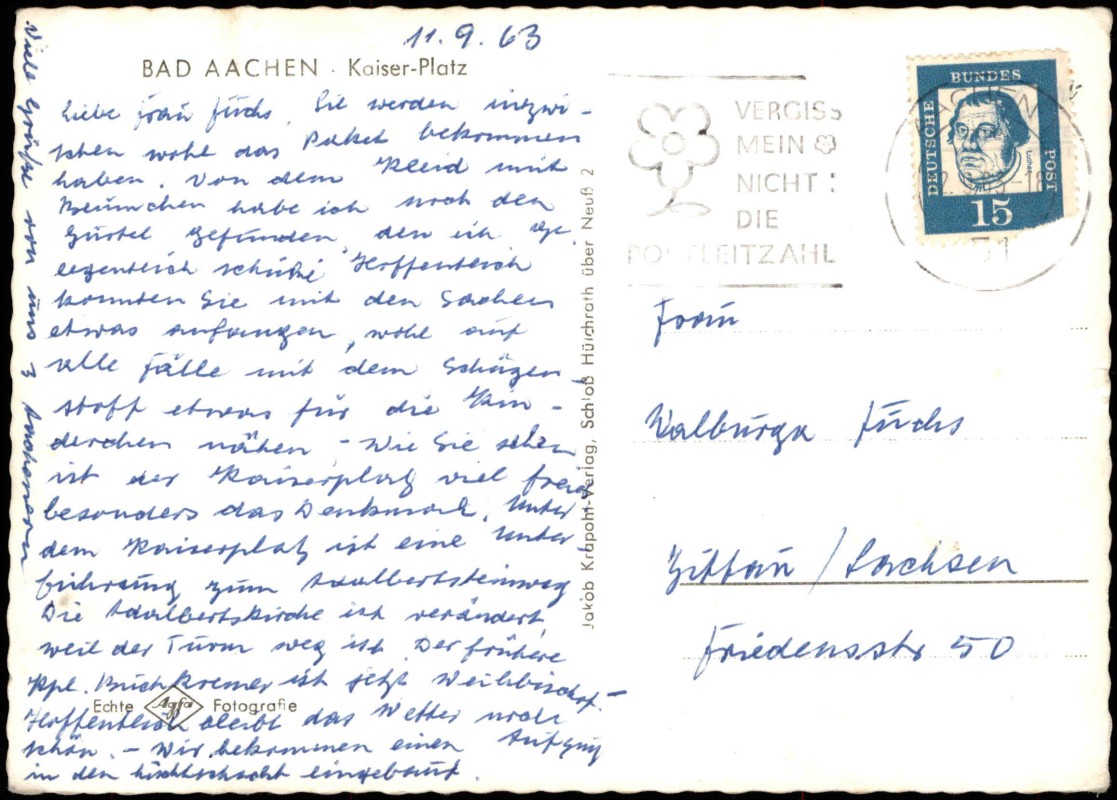 11.9.63
BAD AACHEN · Kaiser-Platz
Liebe Frau Fuchs, Sie werden inzwi-
schen wohl das Paket bekommen
haben. Von dem Kleid mit
Blümchen habe ich noch den
Gürtel gefunden, den ich ge-
legentlich schicke. Hoffentlich
konnten Sie mit den Sachen
etwas anfangen, wohl auf
alle Fälle mit dem
stoff etwas für die Kin-
derchen nähen. – Wie Sie sehen
ist der Kaiserplatz viel freier
besonders das Denkmal. Unter
dem Kaiserplatz ist eine Unter
führung zum Adalbertsteinweg
Die Adalbertskirche ist verändert,
weil der Turm weg ist. Der frühere
Kpl. Buchkremer ist jetzt Weihbischof. –
Hoffentlich bleibt das Wetter noch
schön. – Wir bekommen einen Aufzug
in den Lichtschacht eingebaut.
Viele Grüße von uns 3 Aachenern
Echte Agfa Fotografie
Jakob Krapohl-Verlag, Schloß Hülchrath über Neuß 2
VERGISS
MEIN
NICHT:
DIE
POSTLEITZAHL
AACHEN
51
DEUTSCHE
BUNDES
POST
Luther
15
Frau
Walburga Fuchs
Zittau / Sachsen
Friedensstr 50